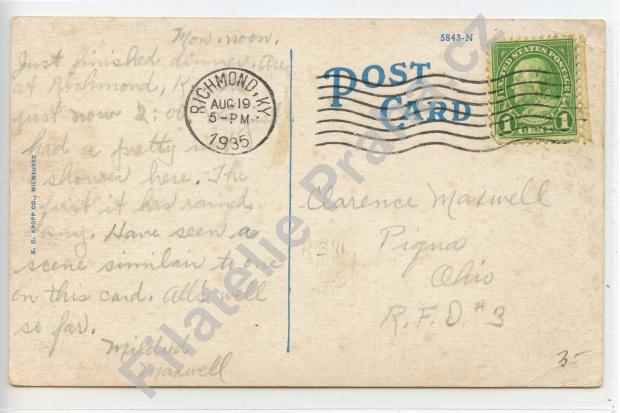 Mon. noon.
Just finished dinner. Are
at Richmond, K
just now 2:00
had a pretty
shower here. The
first it has rained
any. Have seen a
scene similair to one
on this card. All's well
so far.
Mildred
Maxwell
RICHMOND, KY.
AUG 19
5-PM
1935
5843-N
POST
CARD
UNITED STATES POSTAGE
1 CENT 1
Clarence Maxwell
Piqua
Ohio
R.F.D. #3
3-
E. C. KROPP CO., MILWAUKEE
Filatelie Praga.cz